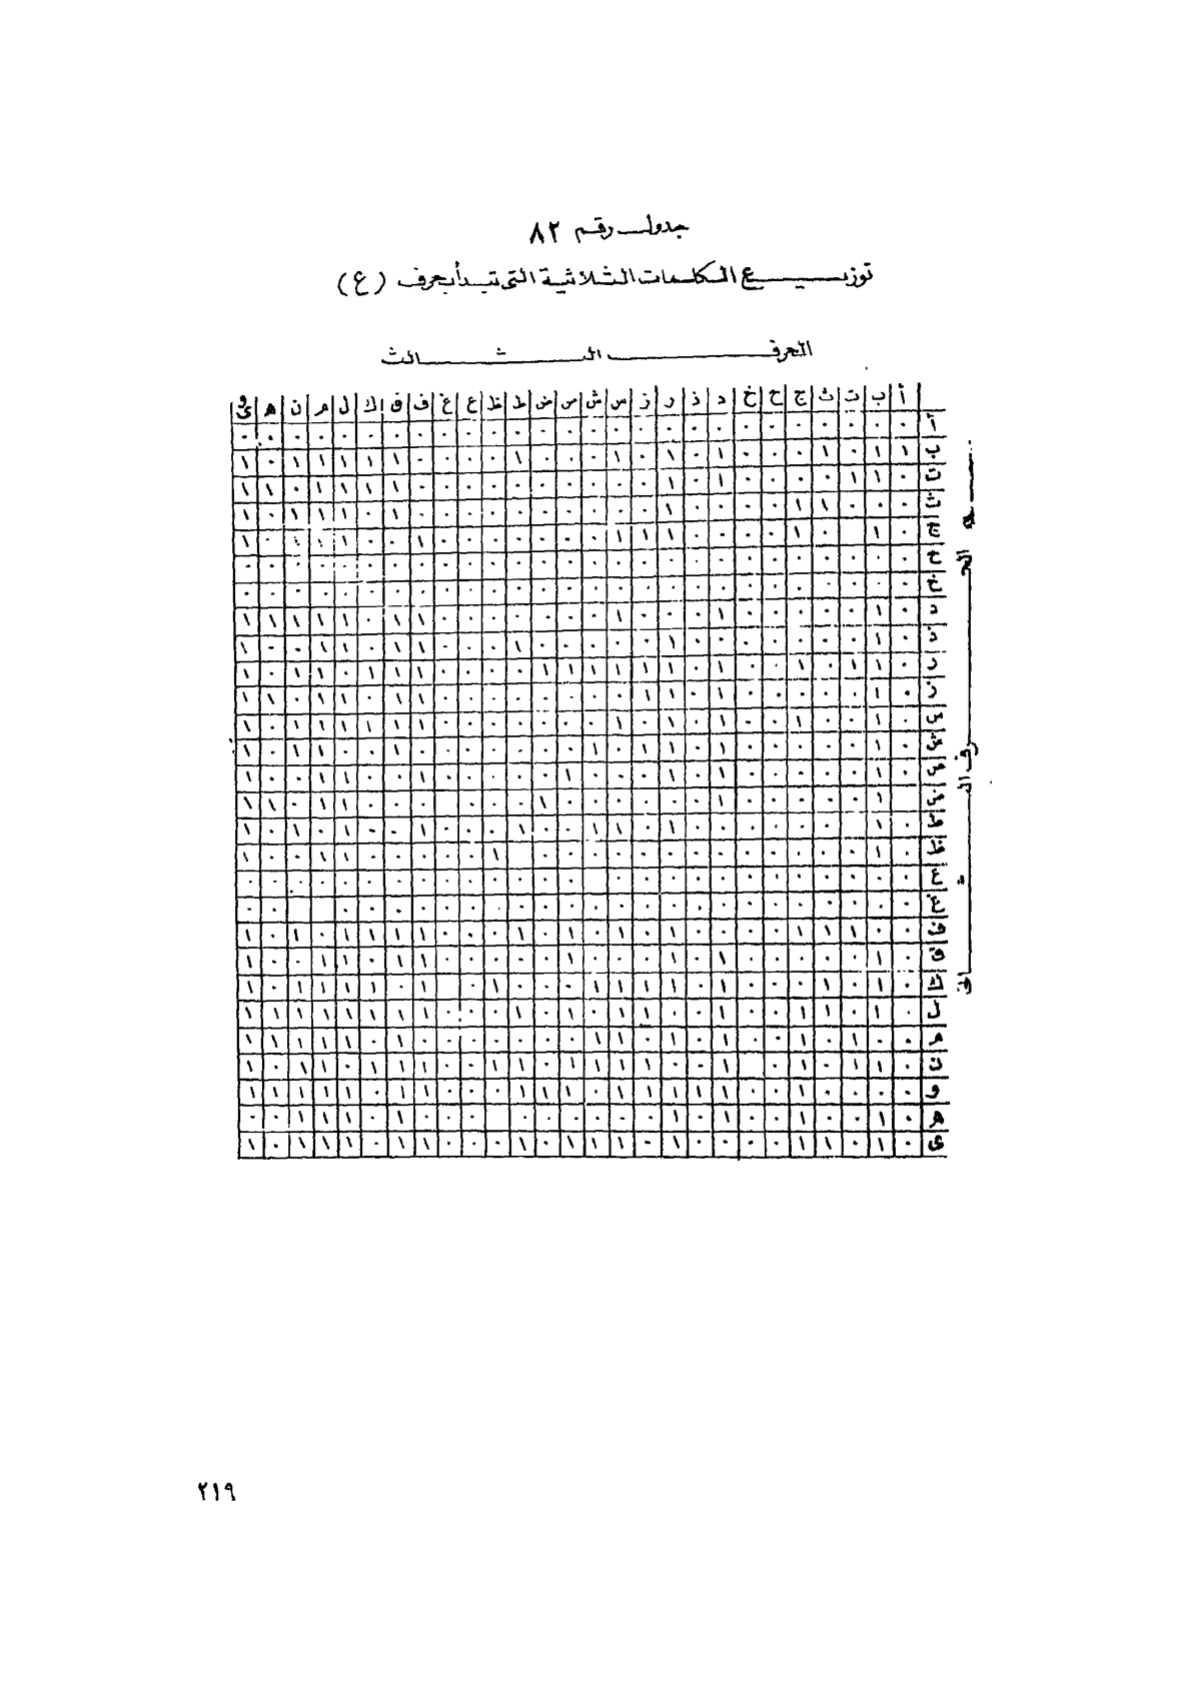 جدول رقم ٨٢
توزيع الكلمات الثلاثية التى تبدأ بحرف (ع)
الحرف الثالث
أ ب ت ث ج ح خ د ذ ر ز س ش ص ض ط ظ ع غ ف ق ك ل م ن ه وى
الحرف الثانى
أ ٠ ٠ ٠ ٠ ٠ ٠ ٠ ٠ ٠ ٠ ٠ ٠ ٠ ٠ ٠ ٠ ٠ ٠ ٠ ٠ ٠ ٠ ٠ ٠ ٠ ٠ ٠
ب ١ ١ ٠ ١ ٠ ٠ ٠ ١ ٠ ١ ٠ ١ ٠ ٠ ٠ ١ ٠ ٠ ٠ ٠ ١ ١ ١ ١ ١ ٠ ١
ت ٠ ١ ١ ٠ ٠ ٠ ٠ ١ ٠ ١ ٠ ٠ ٠ ٠ ٠ ٠ ٠ ٠ ٠ ٠ ١ ١ ١ ١ ٠ ١ ١
ث ٠ ٠ ٠ ١ ١ ٠ ٠ ٠ ٠ ١ ٠ ٠ ٠ ٠ ٠ ٠ ٠ ٠ ٠ ٠ ١ ٠ ١ ١ ١ ٠ ١
ج ٠ ١ ٠ ٠ ١ ٠ ٠ ٠ ٠ ١ ١ ١ ٠ ٠ ٠ ٠ ٠ ٠ ٠ ١ ٠ ٠ ١ ١ ١ ٠ ١
ح ٠ ٠ ٠ ٠ ٠ ٠ ٠ ٠ ٠ ٠ ٠ ٠ ٠ ٠ ٠ ٠ ٠ ٠ ٠ ٠ ٠ ٠ ٠ ٠ ٠ ٠ ٠
خ ٠ ٠ ٠ ٠ ٠ ٠ ٠ ٠ ٠ ٠ ٠ ٠ ٠ ٠ ٠ ٠ ٠ ٠ ٠ ٠ ٠ ٠ ٠ ٠ ٠ ٠ ٠
د ٠ ١ ٠ ٠ ٠ ٠ ٠ ١ ٠ ٠ ٠ ١ ٠ ٠ ٠ ٠ ٠ ٠ ٠ ١ ١ ٠ ١ ١ ١ ١ ١
ذ ٠ ١ ٠ ٠ ٠ ٠ ٠ ٠ ٠ ١ ٠ ٠ ٠ ٠ ٠ ١ ٠ ٠ ٠ ١ ١ ٠ ١ ١ ٠ ٠ ١
ر ٠ ١ ١ ٠ ١ ٠ ٠ ١ ٠ ١ ١ ١ ١ ١ ١ ٠ ٠ ٠ ٠ ١ ١ ١ ٠ ١ ١ ٠ ١
ز ٠ ١ ٠ ٠ ٠ ٠ ٠ ١ ٠ ١ ١ ٠ ٠ ٠ ٠ ٠ ٠ ٠ ٠ ١ ١ ٠ ١ ١ ٠ ١ ١
س ٠ ١ ٠ ٠ ١ ٠ ٠ ١ ٠ ١ ٠ ١ ٠ ٠ ٠ ٠ ٠ ٠ ٠ ١ ١ ١ ١ ١ ١ ٠ ١
ش ٠ ١ ٠ ٠ ٠ ٠ ٠ ١ ٠ ١ ١ ٠ ١ ٠ ٠ ٠ ٠ ٠ ٠ ٠ ١ ٠ ٠ ١ ١ ٠ ١
ص ٠ ١ ٠ ٠ ٠ ٠ ٠ ١ ٠ ١ ٠ ٠ ٠ ١ ٠ ٠ ٠ ٠ ٠ ١ ٠ ٠ ١ ١ ٠ ٠ ١
ض ١ ٠ ٠ ٠ ٠ ٠ ١ ٠ ٠ ٠ ٠ ٠ ٠ ١ ٠ ٠ ٠ ٠ ٠ ٠ ١ ١ ٠ ١ ١
ط ٠ ١ ٠ ٠ ٠ ٠ ٠ ٠ ٠ ١ ٠ ١ ١ ٠ ٠ ١ ٠ ٠ ٠ ١ ٠ ٠ ١ ٠ ١ ٠ ١
ظ ٠ ١ ٠ ٠ ٠ ٠ ٠ ٠ ٠ ٠ ٠ ٠ ٠ ٠ ٠ ٠ ١ ٠ ٠ ٠ ٠ ٠ ١ ١ ٠ ٠ ١
ع ٠ ٠ ٠ ٠ ٠ ٠ ٠ ٠ ٠ ٠ ٠ ٠ ٠ ٠ ٠ ٠ ٠ ٠ ٠ ٠ ٠ ٠ ٠ ٠ ٠ ٠
غ ٠ ٠ ٠ ٠ ٠ ٠ ٠ ٠ ٠ ٠ ٠ ٠ ٠ ٠ ٠ ٠ ٠ ٠ ٠ ٠ ٠ ٠ ٠ ٠ ٠
ف ٠ ٠ ١ ١ ١ ٠ ٠ ١ ٠ ١ ٠ ١ ٠ ١ ٠ ١ ٠ ٠ ٠ ١ ١ ١ ١ ٠ ١ ٠ ١
ق ٠ ١ ٠ ٠ ٠ ٠ ٠ ١ ٠ ١ ٠ ٠ ٠ ١ ٠ ٠ ٠ ٠ ٠ ١ ١ ٠ ١ ١ ٠ ٠ ١
ك ٠ ١ ٠ ١ ٠ ٠ ٠ ١ ٠ ١ ١ ١ ١ ٠ ٠ ٠ ١ ٠ ١ ٠ ١ ١ ١ ١ ٠ ١
ل ٠ ١ ٠ ١ ١ ٠ ٠ ١ ٠ ٠ ١ ١ ٠ ١ ٠ ١ ٠ ٠ ٠ ١ ١ ١ ١ ١ ١ ١ ١
م ٠ ٠ ١ ٠ ١ ٠ ٠ ١ ٠ ١ ٠ ١ ١ ٠ ٠ ٠ ٠ ٠ ٠ ٠ ١ ٠ ١ ١ ١ ١ ١
ن ٠ ١ ١ ٠ ١ ٠ ١ ٠ ٠ ١ ١ ١ ١ ٠ ١ ١ ٠ ٠ ١ ١ ١ ٠ ١ ١ ٠ ١
و ٠ ٠ ٠ ٠ ١ ٠ ٠ ١ ١ ١ ١ ١ ٠ ١ ١ ١ ٠ ٠ ٠ ١ ١ ٠ ١ ١ ١ ١ ١
ه ٠ ١ ٠ ٠ ١ ٠ ٠ ٠ ٠ ١ ٠ ٠ ٠ ٠ ٠ ٠ ٠ ٠ ٠ ١ ٠ ١ ١ ١ ٠ ٠
ى ٠ ١ ٠ ١ ١ ٠ ٠ ٠ ٠ ١ ٠ ١ ١ ١ ٠ ١ ٠ ٠ ٠ ١ ١ ٠ ١ ١ ١ ٠ ١
٢١٩